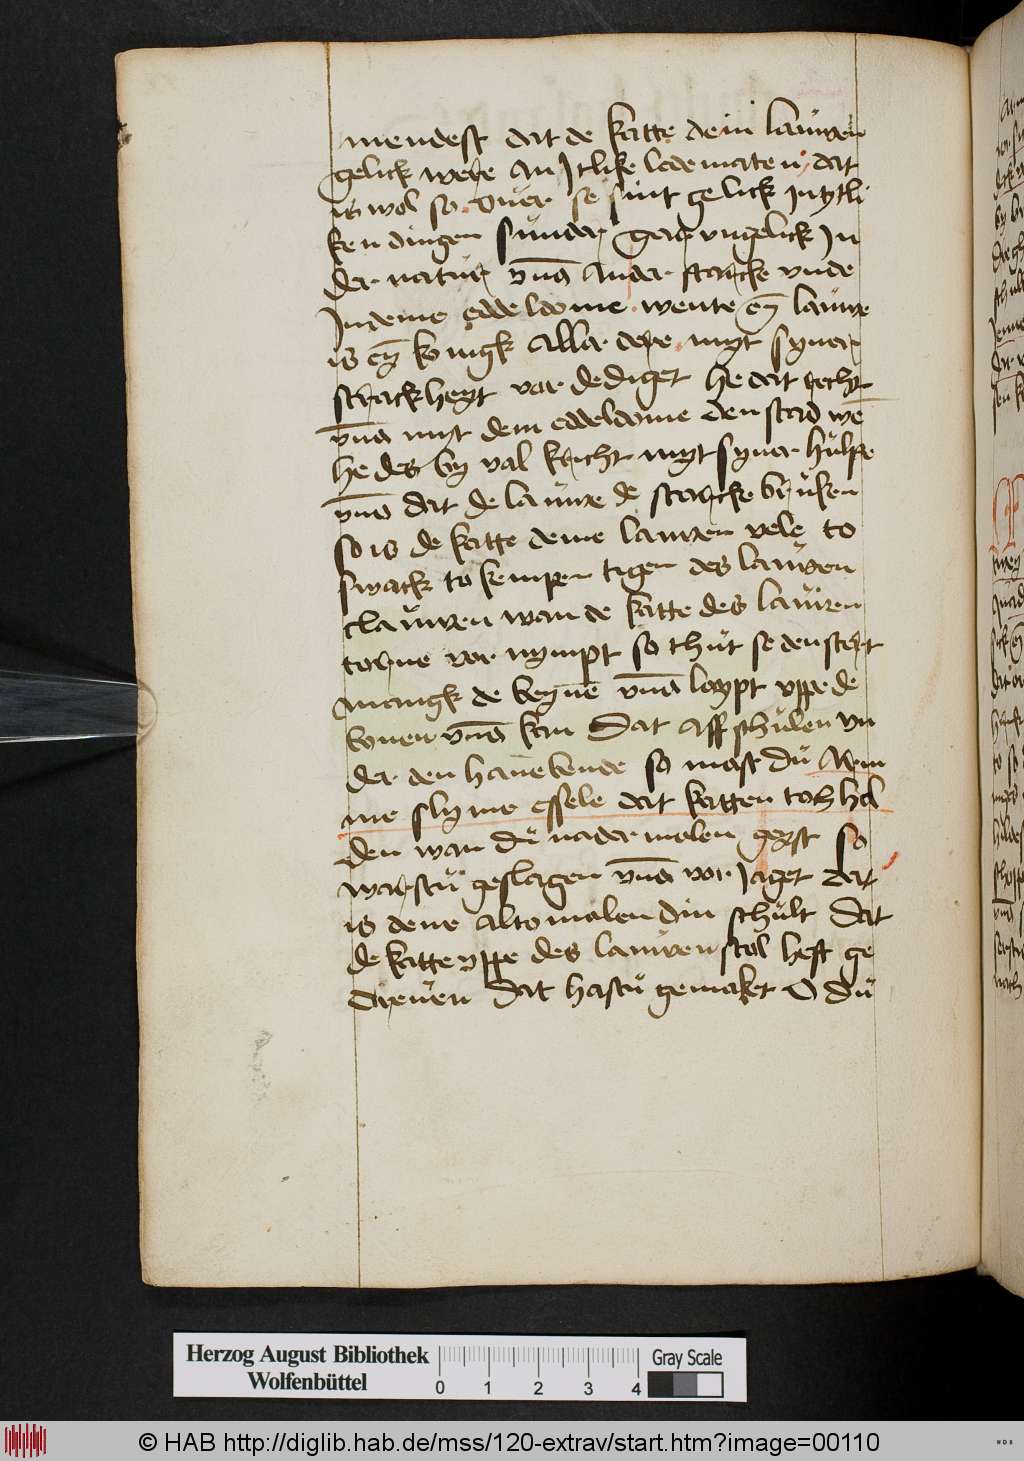 mendest dat de katte dem lauwen
gelick were an Itlike ledematen dat
is wol so ouer se sint gelick In ytli
ken dingen sunder gar vngelick In
der natur vnd Ander starcke vnde
In deme eddeldome wente eyn lauwe
is eyn konigk aller dere myt syner
starckheyt vor dediget he dat recht
vnd myt dem eddeldome den stad we
he des by val kricht myt syner hulpe
vnd dat de lauwe de starcke bruken
so is de katte deme lauwen vele to
swack to kempen tigen des lauwen
clauwen wan de katte des lauwen
torne vor nympt so thut se den stert
mangk de beyne vnd loypt vppe de
bonen vnd kan dat aff schulen vn
der den hanebende so most du Arm
me slyme essele dat katten toch hol
den wan du nader molen geyst so
warstu geslagen vnd vor Jaget dat
is dene altomalen din schult dat
de katte vppe des lauwen stol heft ge
dreuen dat hastu gemaket O du
Herzog August Bibliothek
Wolfenbüttel
0 1 2 3 4
Gray Scale
© HAB http://diglib.hab.de/mss/120-extrav/start.htm?image=00110